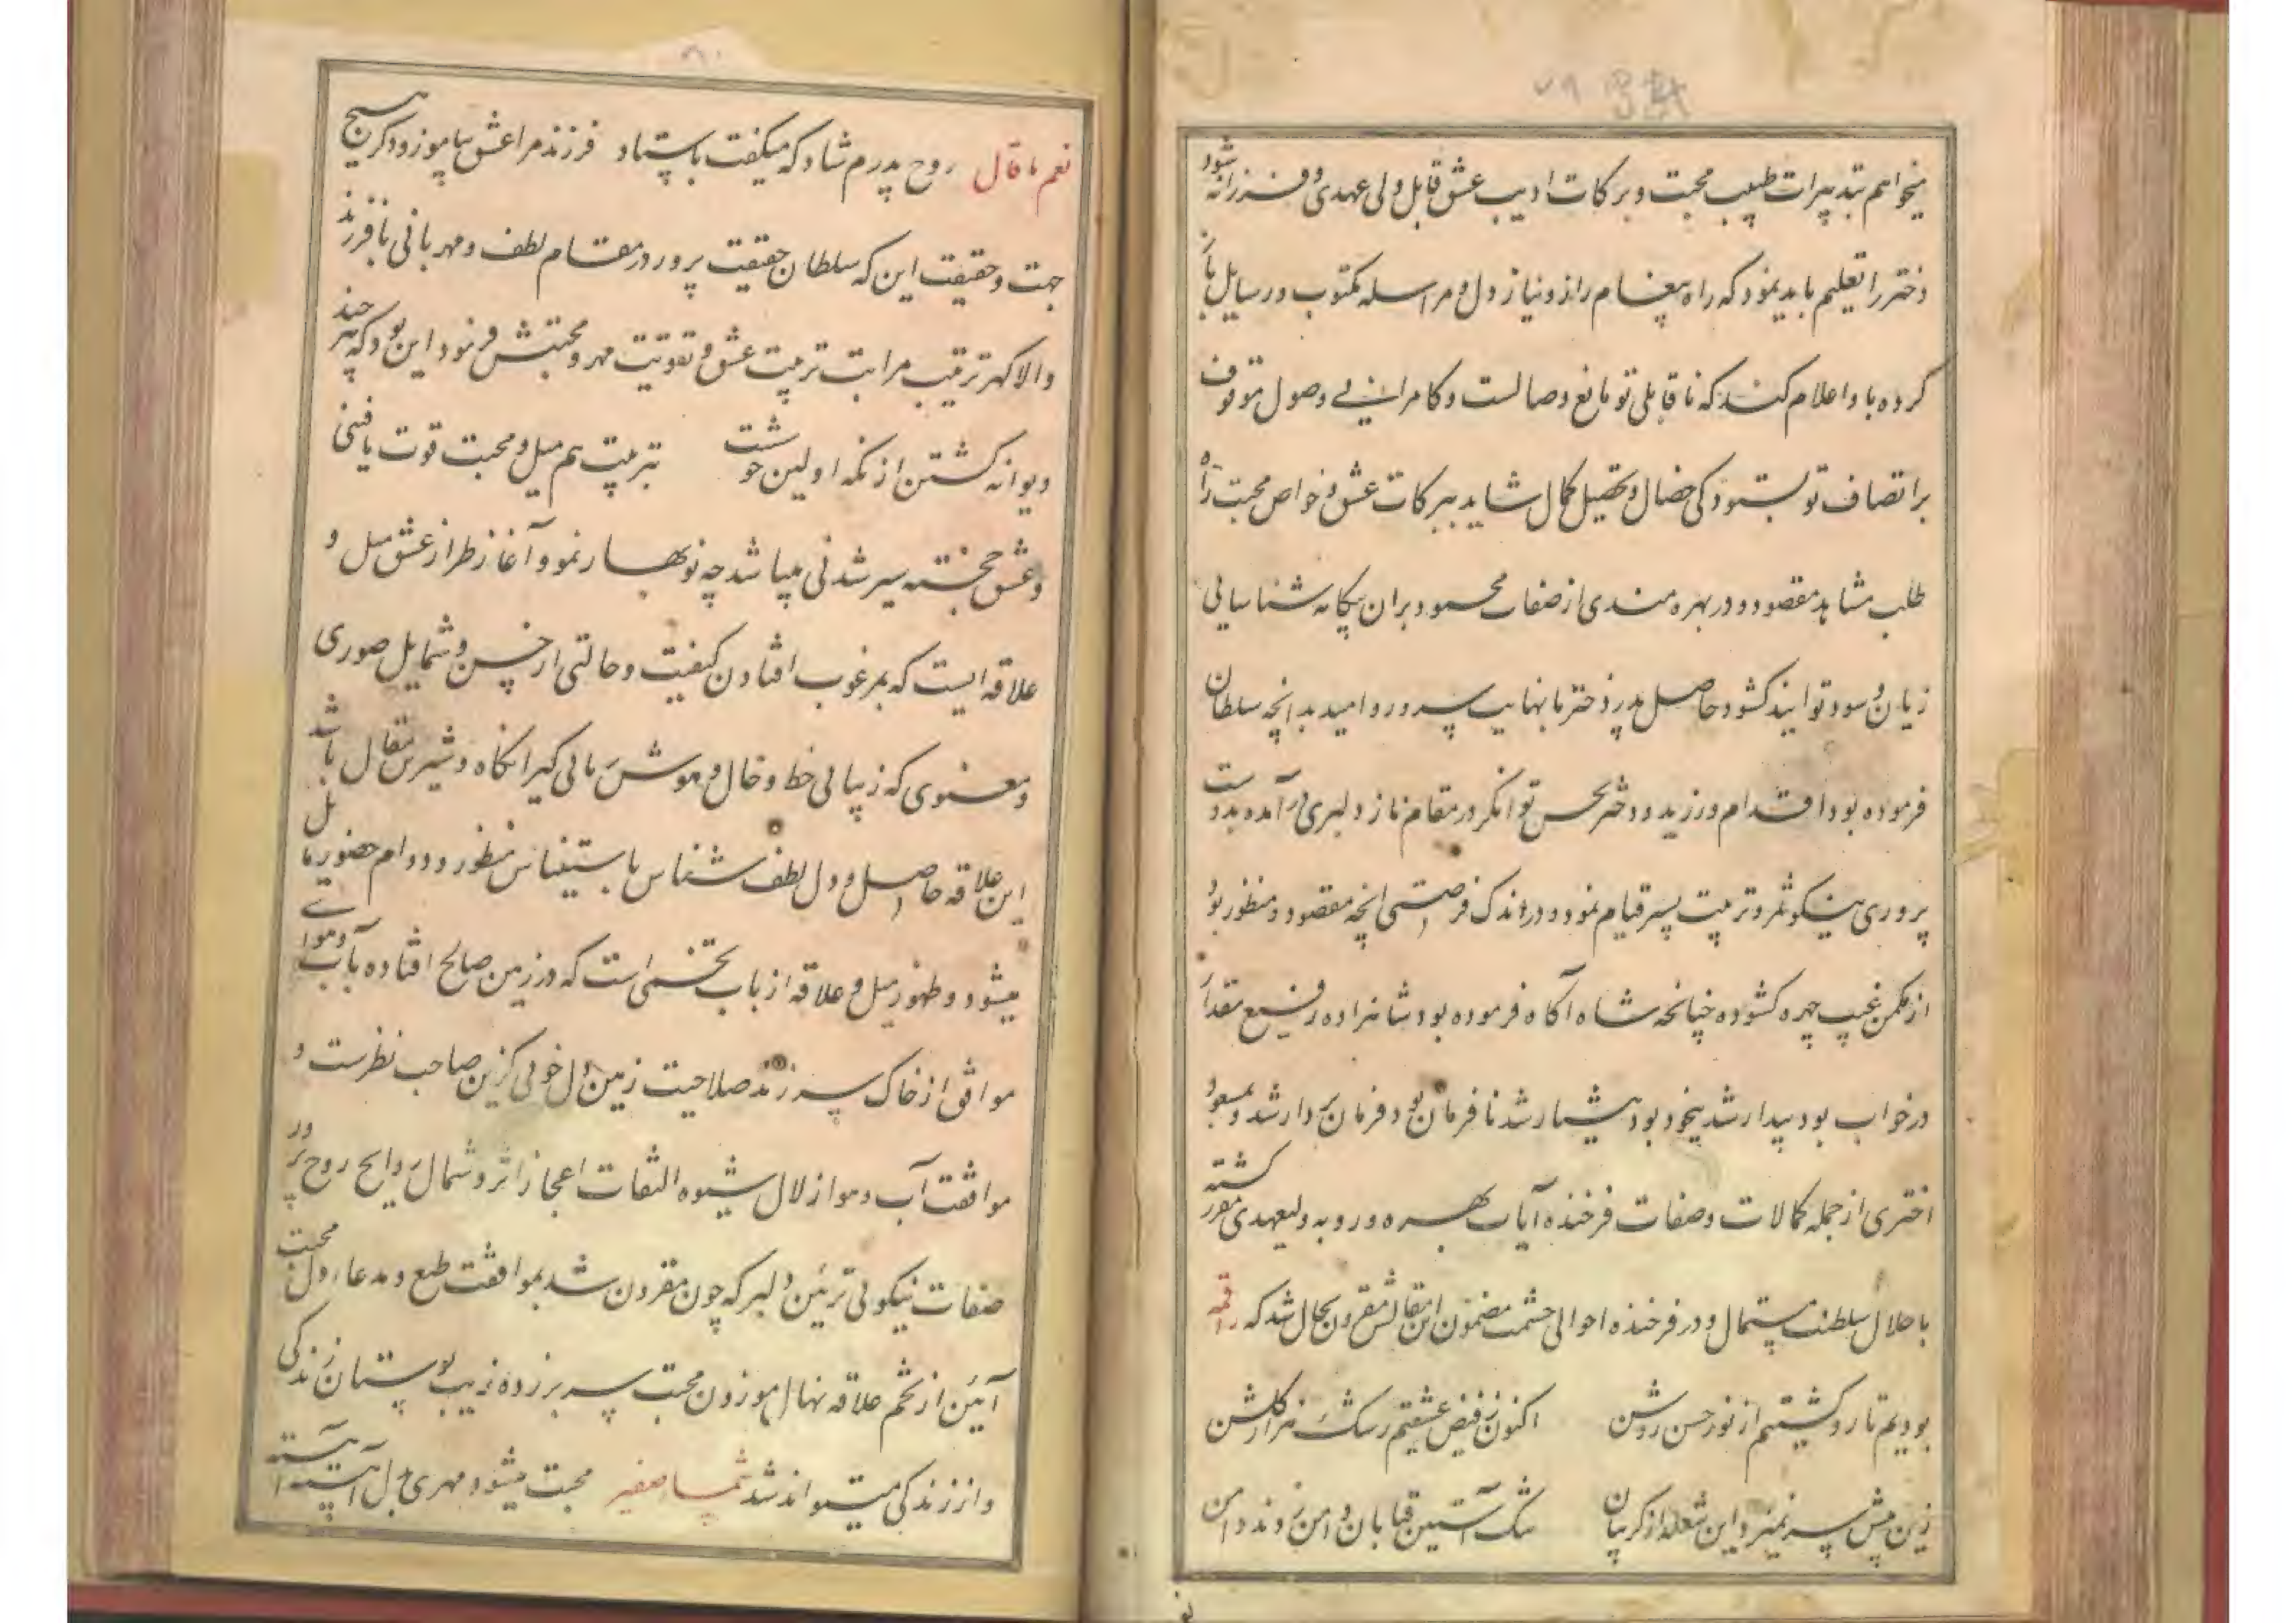 میخواهم بتدبیرات طبیب محبت و برکات ادیب عشق قابل ولی عهدی و فرزانه شود
دختر را تعلیم باید نمود که راه پیغام راز و نیاز دل و مراسله مکتوب و رسایل باز
کرده باو اعلام کند که ناقابلی تو مانع وصالست و کامرانی وصول موقوف
بر اتصاف تو بستودکی خصال و تحصیل کمال شاید ببرکات عشق و خواص محبت راه
طلب مشاهد مقصود و در بهره مندی از صفات محمود بران بیگانه شناسائی
زیان و سود توانند کشود حاصل پدر دختر ما بنهایت سرور و امید بدانچه سلطان
فرموده بود اقدام ورزید و دختر بحسن توانکر در مقام ناز و دلبری درآمده بدوست
پروری نیکو ثمر و تربیت پسر قیام نمود و در اندک فرصتی انچه مقصود و منظور بود
از مکمن غیب چهره کشوده چنانچه شاه آکاه فرموده بود شاهزاده رفیع مقدار
در خواب بود بیدار شد بیخود بود هشیار شد نافرمان بود فرمان بردار شد و بمسعود
اختری از جمله کمالات و صفات فرخنده آیات بهره ور و به ولیعهدی مقرر کشته
با جلال سلطنت مستمال و در فرخنده احوالی حشمت مضمون این مقالش مقرون بحال شد که راقمه
بودیم تار و کشتیم از نور حسن روشن اکنون ز فیض عشقیم رشک هزار کلشن
زین پیش سر نمیزد این شعله از کریبان
۸۰
نعم ما قال روح پدرم شاد که میکفت باستاد فرزند مرا عشق بیاموز و دکر هیچ
جهت و حقیقت این که سلطان حقیقت پرور در مقام لطف و مهربانی با فرزند
والا کهر ترتیب مراتب تربیت عشق و تقویت مهر و محبتش فرمود این بود که هر چند
دیوانه کشتن از نکه اولین خوشست بتربیت هم میل و محبت قوت یافتنی
و عشق خجسته سیر شدنی میباشد چه نوبهار نمو و آغاز طراز عشق میل و
علاقه ایست که بمرغوب افتادن کیفیت و حالتی از حسن و شمایل صوری
و معنوی که زیبائی خط و خال و هوش ربائی کیرا نکاه و شیرین مقال باشد
این علاقه حاصل و دل لطف شناس باستیناس منظور و دوام حضور مایل
میشود و ظهور میل و علاقه از باب تخمی است که در زمین صالح افتاده بآب و هوای
موافق از خاک سر زند صلاحیت زمین دل خوبی کزین صاحب نظرست و
موافقت آب و هوا زلال شیوه التفات اعجاز اثر و شمال روایح روح پرور
صفات نیکوئی ترئین دلبر که چون مقرون شد بموافقت طبع و مدعاء دل محبت
آئین از تخم علاقه نهال موزون محبت سر بر زده زیب بوستان زندکی
و از زندکی میتواند شد محبت میشود مهری بدل آهسته آهسته